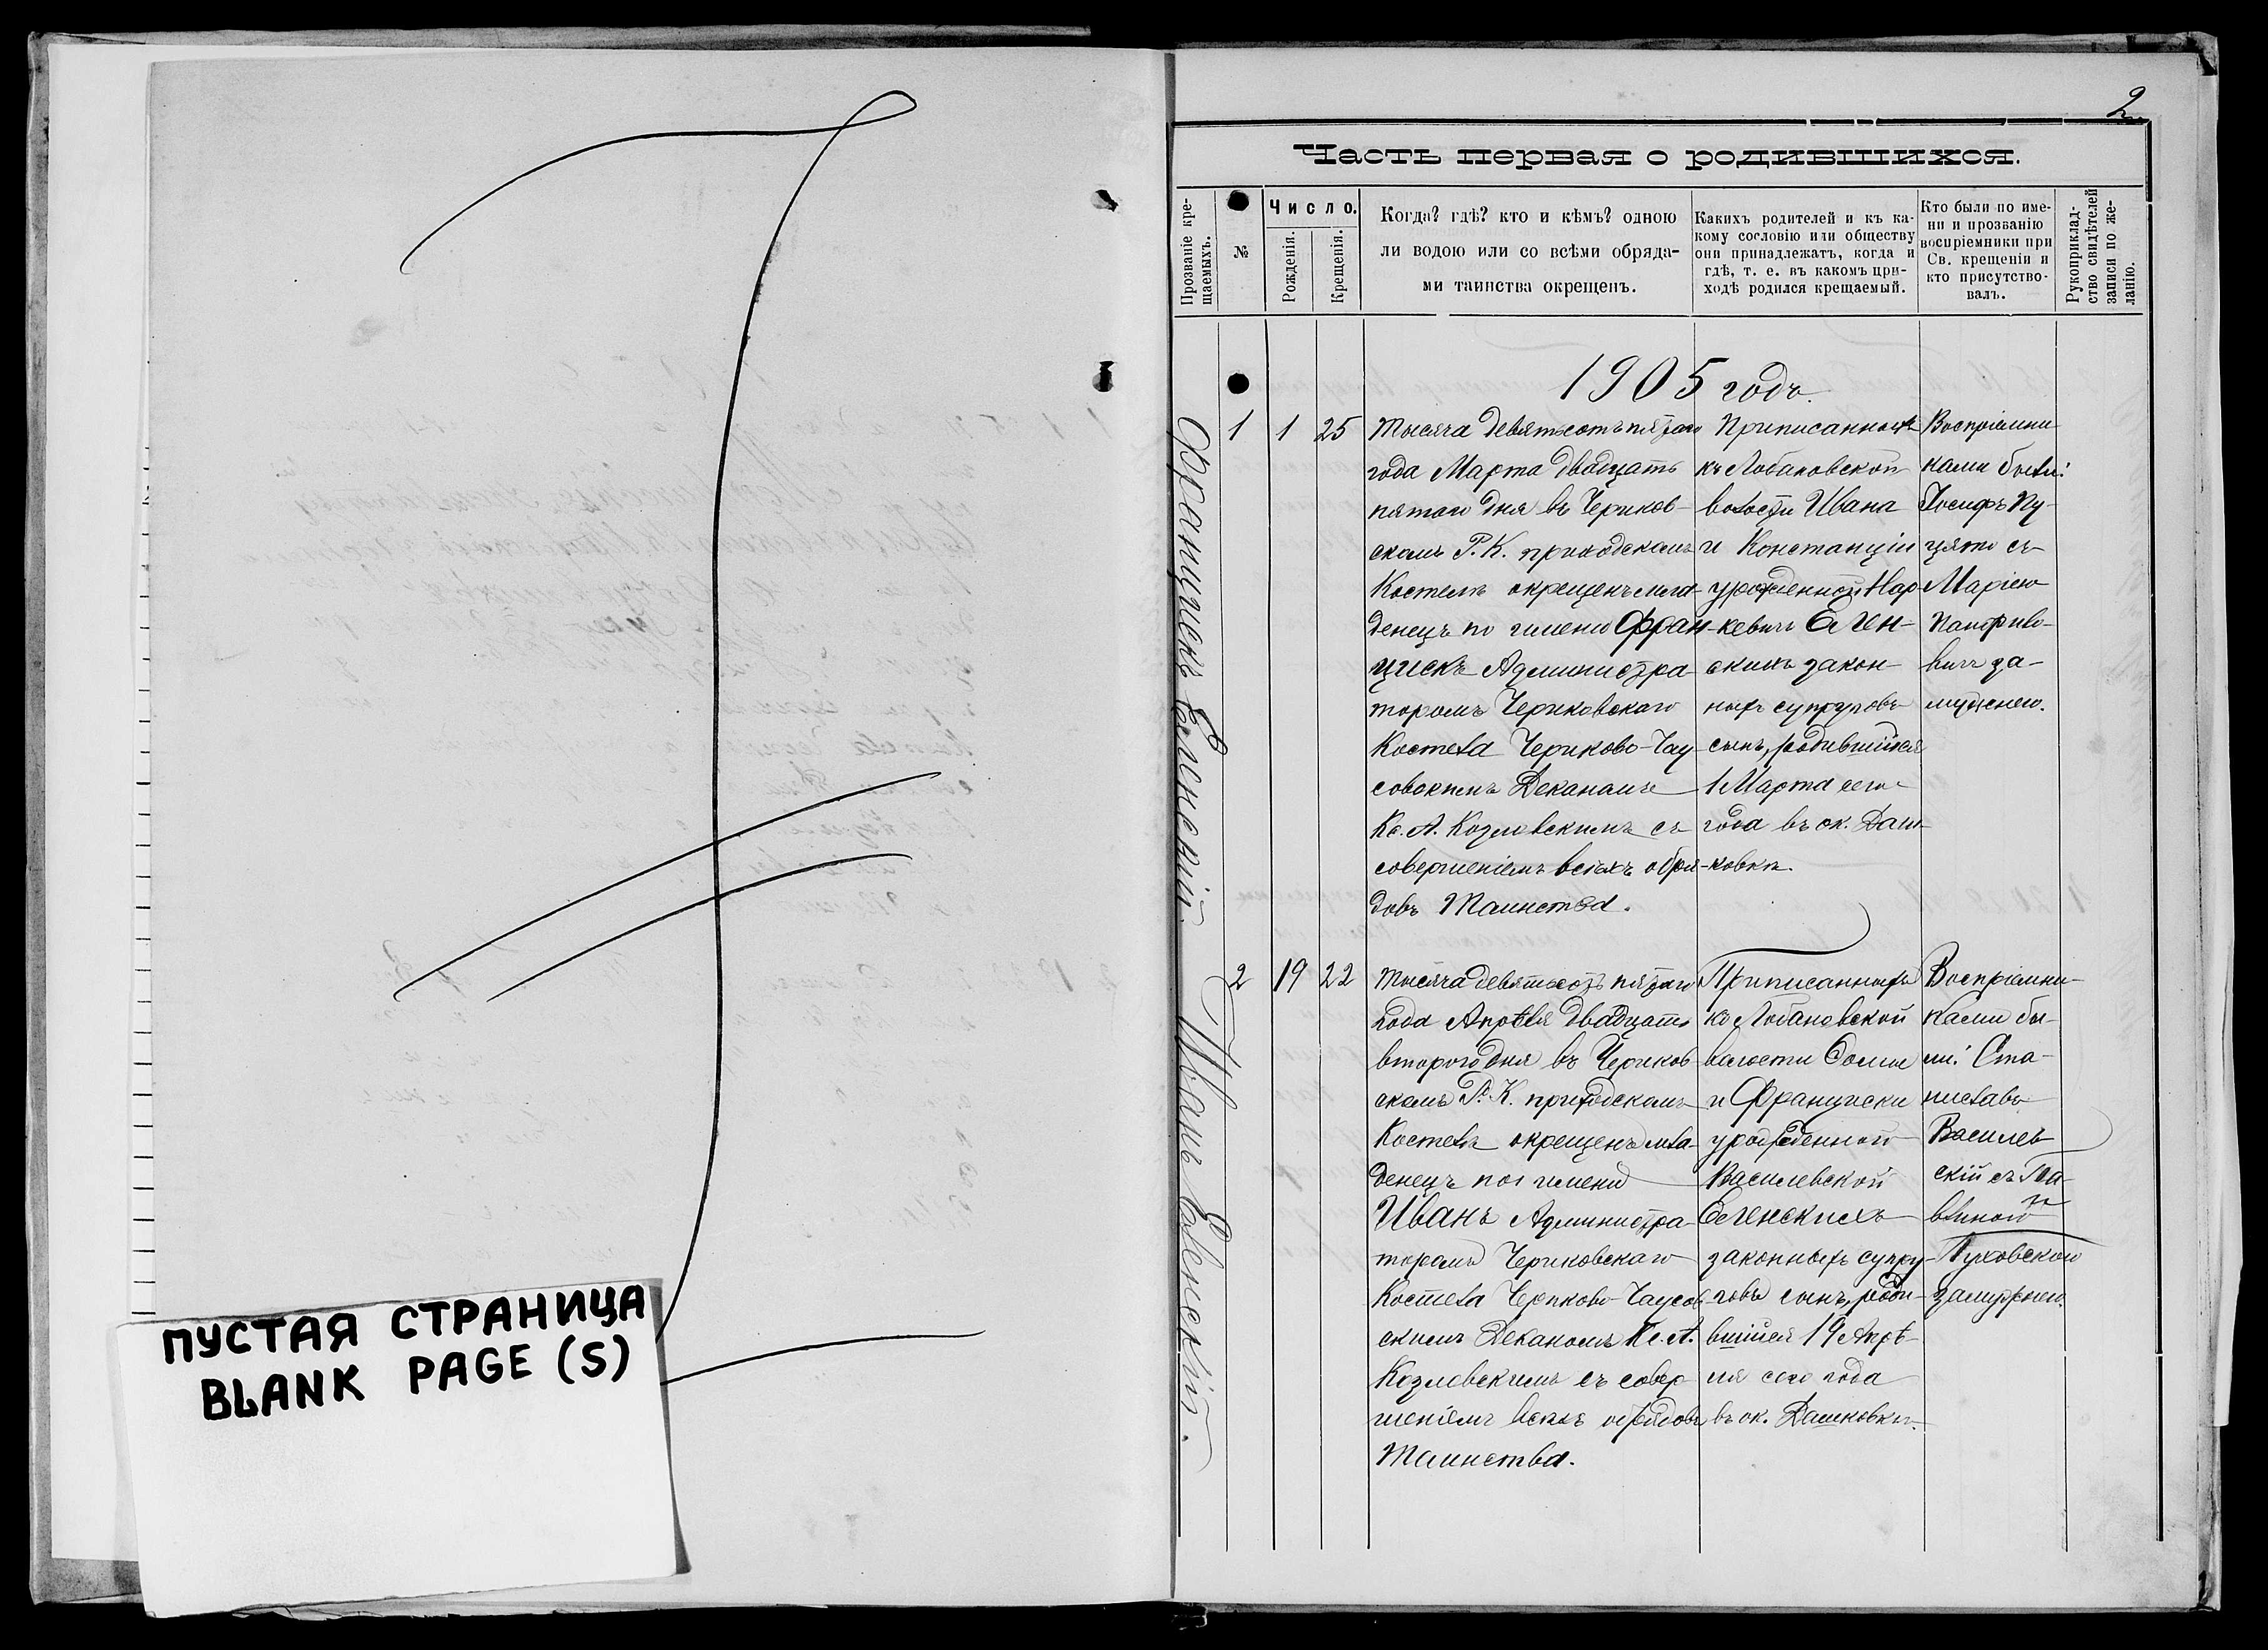 ПУСТАЯ СТРАНИЦА
BLANK PAGE (S)
2
Часть первая о родившихся.
Прозваніе кре-
щаемыхъ.
№
Число.
Рожденія.
Крещенія.
Когда? гдѣ? кто и кѣмъ? одною
ли водою или со всѣми обряда-
ми таинства окрещенъ.
Какихъ родителей и къ ка-
кому сословію или обществу
они принадлежатъ, когда и
гдѣ, т. е. въ какомъ при-
ходѣ родился крещаемый.
Кто были по име-
ни и прозванію
воспріемники при
Св. крещеніи и
кто присутство-
валъ.
Рукоприклад-
ство свидѣтелей
записи по же-
ланію.
1905 годъ.
Францискъ Еленскій.
1 1 25
Тысяча девятьсотъ пятаго
года Марта двадцать
пятаго дня въ Чериков-
скомъ Р. К. приходскомъ
Костелѣ окрещенъ мла-
денецъ по имени Фран-
цискъ Администра-
торомъ Чериковскаго
Костела Чериково-Чау-
совскимъ Деканомъ
Кс. А. Козловскимъ съ
совершеніемъ всѣхъ обря-
довъ Таинства.
Приписанныхъ
къ Лобановской
волости Ивана
и Констанціи
урожденной Нар-
кевичъ Елен-
скихъ закон-
ныхъ супруговъ
сынъ, родившійся
1 Марта сего
года въ ок. Даш-
ковкѣ.
Воспріемни-
ками были:
Іосифъ Пу-
цято съ
Маріею
вичъ за-
мужнею.
Иванъ Еленскій.
2 19 22
Тысяча девятьсотъ пятаго
года Апрѣля двадцать
втораго дня въ Чериков-
скомъ Р. К. приходскомъ
Костелѣ окрещенъ мла-
денецъ по имени
Иванъ Администра-
торомъ Чериковскаго
Костела Чериково-Чаусов-
скимъ Деканомъ Кс. А.
Козловскимъ съ совер-
шеніемъ всѣхъ обрядовъ
Таинства.
Приписанныхъ
къ Лобановской
волости Фомы
и Франциски
урожденной
Василевской
Еленскихъ
законныхъ супру-
говъ сынъ, роди-
вшійся 19 Апрѣ-
ля сего года
въ ок. Дашковкѣ.
Воспріемни-
ками бы-
ли: Ста-
ниславъ
Василев
скій съ Па-
влиною
замужнею.